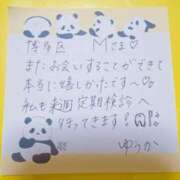 博多区 Mさま♡
またお会いすることができて
本当に嬉しかったです〜♡
私も来週定期検診へ
行ってきます!
ゆうか